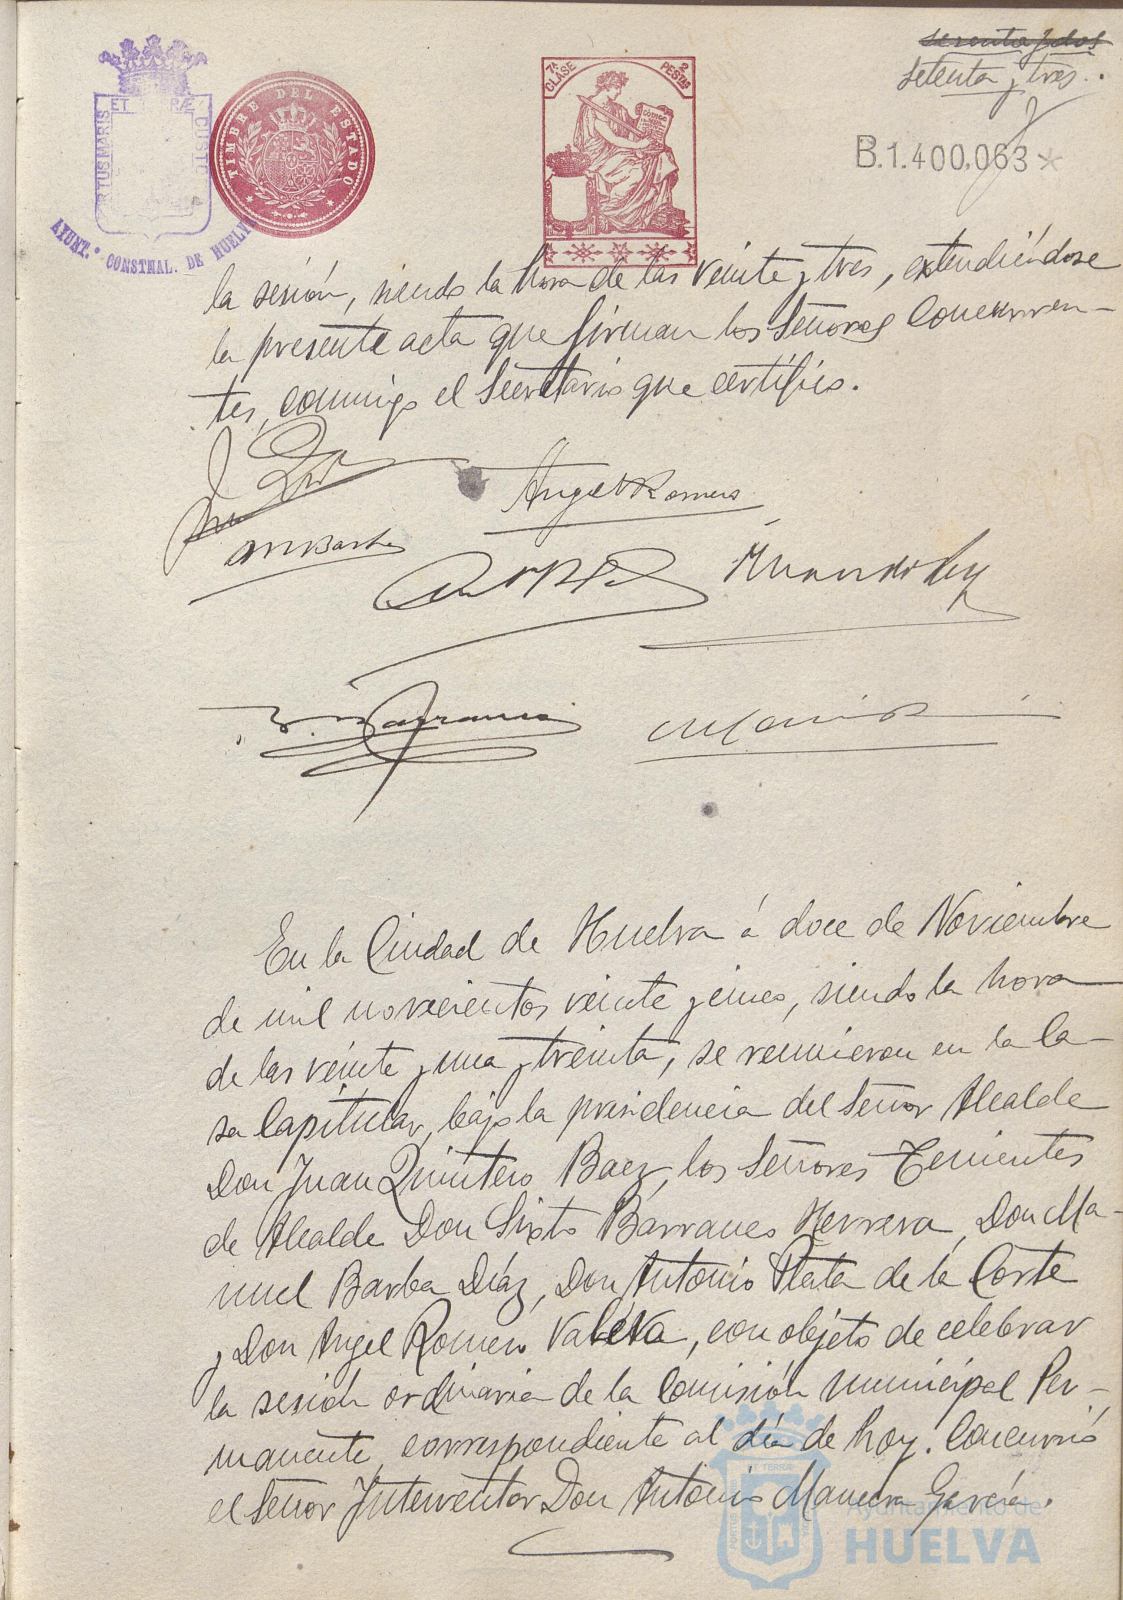 setenta y dos
setenta y tres.
7ª CLASE
2 PESTAS
B.1.400.063*
TIMBRE DEL ESTADO
PORTUS MARIS ET TERRÆ CUSTO
AYUNT.º CONSTNAL. DE HUELVA
la sesión, siendo la hora de las veinte y tres, extendiéndose
la presente acta que firman los Señores Concurren-
tes, conmigo el Secretario que certifico.
Angel Romero
En la Ciudad de Huelva á doce de Noviembre
de mil novecientos veinte y cinco, siendo la hora
de las veinte y una y treinta, se reunieron en la Ca-
sa Capitular, bajo la presidencia del Señor Alcalde
Don Juan Quintero Baez, los Señores Tenientes
de Alcalde Don Sixto Barranco Herrera, Don Ma-
nuel Barba Díaz, Don Antonio Plata de la Corte
y Don Angel Romero Valéva, con objeto de celebrar
la sesión ordinaria de la Comisión municipal Per-
manente, correspondiente al día de hoy. Concurrió
el Señor Interventor Don Antonio Manuera García.
Ayuntamiento de
HUELVA